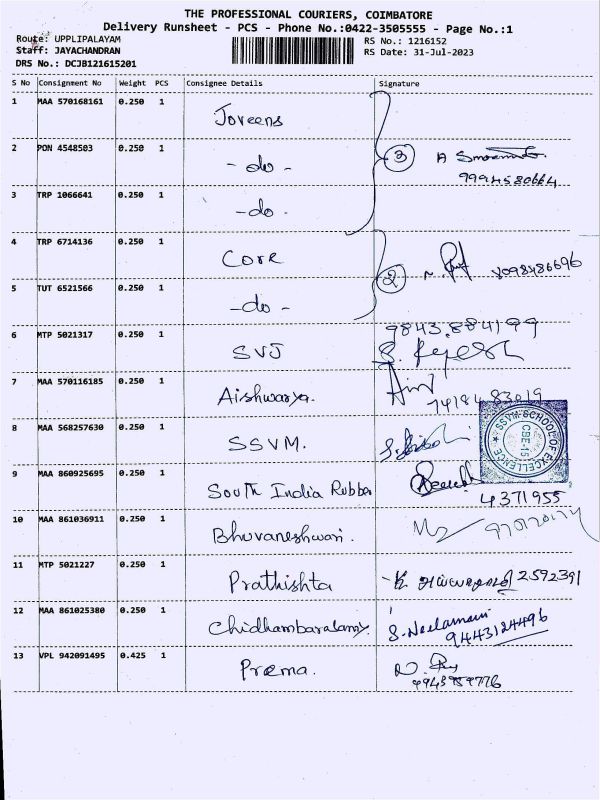 THE PROFESSIONAL COURIERS, COIMBATORE
Delivery Runsheet - PCS - Phone No.:0422-3505555 - Page No.:1
Route: UPPLIPALAYAM
RS No.: 1216152
Staff: JAYACHANDRAN
RS Date: 31-Jul-2023
DRS No.: DCJB121615201
S No Consignment No Weight PCS Consignee Details Signature
1 MAA 570168161 0.250 1 Joveens
2 PON 4548503 0.250 1 - do - 3 A
9994580664
3 TRP 1066641 0.250 1 - do -
4 TRP 6714136 0.250 1 Core 2 8098486696
5 TUT 6521566 0.250 1 - do -
9843884199
6 MTP 5021317 0.250 1 SVJ
7 MAA 570116185 0.250 1 Aishwarya.
7418483019
8 MAA 568257630 0.250 1 SSVM. SSVM SCHOOL OF EXCELLENCE CBE-15
9 MAA 860925695 0.250 1 South India Rubber
4371955
10 MAA 861036911 0.250 1 Bhuvaneshwari.
11 MTP 5021227 0.250 1 Prathishta 2592391
12 MAA 861025380 0.250 1 Chidhambaralamy. S. Neelamani
9443124496
13 VPL 942091495 0.425 1 Prema.